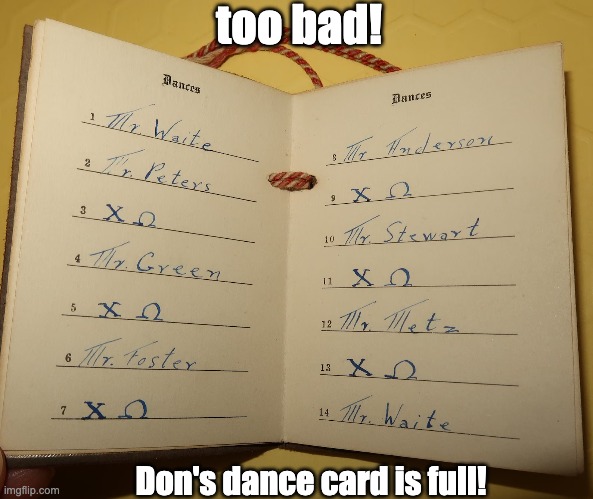 too bad!
Dances
1 Mr. Waite
2 Mr. Peters
3 Χ Ω
4 Mr. Green
5 Χ Ω
6 Mr. Foster
7 Χ Ω
Dances
8 Mr. Anderson
9 Χ Ω
10 Mr. Stewart
11 Χ Ω
12 Mr. Metz
13 Χ Ω
14 Mr. Waite
Don's dance card is full!
imgflip.com